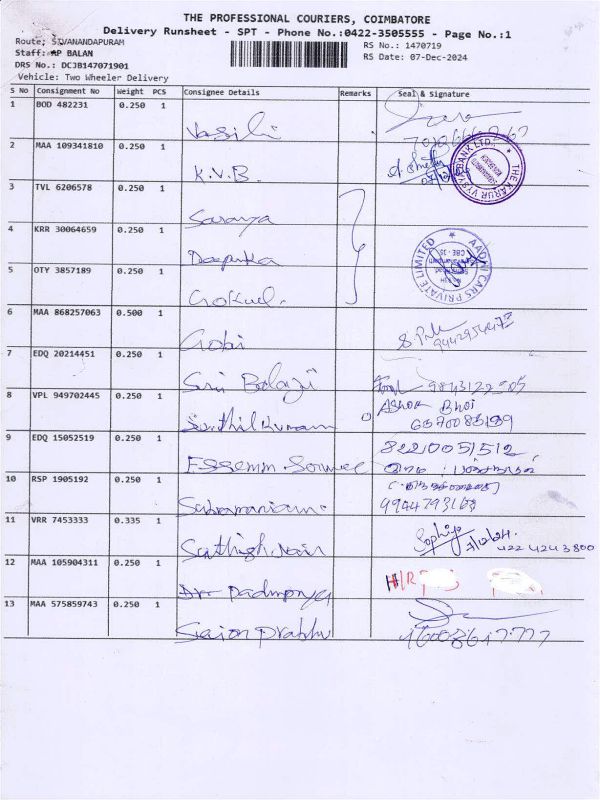 THE PROFESSIONAL COURIERS, COIMBATORE
Delivery Runsheet - SPT - Phone No.:0422-3505555 - Page No.:1
Route: SIVANANDAPURAM
RS No.: 1470719
Staff: AP BALAN
RS Date: 07-Dec-2024
DRS No.: DCJB147071901
Vehicle: Two Wheeler Delivery
S No Consignment No Weight PCS Consignee Details Remarks Seal & Signature
1 BOD 482231 0.250 1 Vasili
2 MAA 109341810 0.250 1 K.V.B.
THE KARUR VYSYA BANK LTD.
3 TVL 6206578 0.250 1 Saranya
4 KRR 30064659 0.250 1 Deepika
AADHI CARS PRIVATE LIMITED
5 OTY 3857189 0.250 1 Gokul.
6 MAA 868257063 0.500 1 Gobi
7 EDQ 20214451 0.250 1 Sri Balaji
8 VPL 949702445 0.250 1 Senthil Kumar
ASHOK Bhoi
9 EDQ 15052519 0.250 1
8220051512
10 RSP 1905192 0.250 1 Subramaniam.
9944793163
11 VRR 7453333 0.335 1 Sathish Nair
Sophiya 7/12/24.
422 4243800
12 MAA 105904311 0.250 1
H/R
13 MAA 575859743 0.250 1 Sajon Prabhu